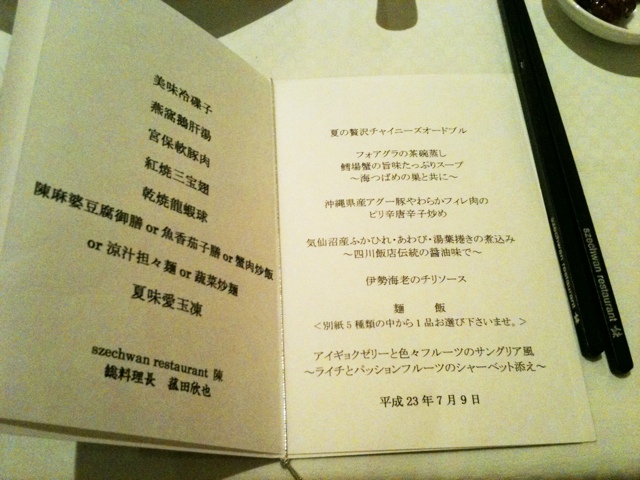 美味冷碟子
燕窩鵝肝湯
宮保軟豚肉
紅焼三宝翅
乾焼龍蝦球
陳麻婆豆腐御膳 or 魚香茄子膳 or 蟹肉炒飯
or 涼汁担々麺 or 蔬菜炒麺
夏味愛玉凍
szechwan restaurant 陳
総料理長 菰田欣也
夏の贅沢チャイニーズオードブル
フォアグラの茶碗蒸し
鱈場蟹の旨味たっぷりスープ
～海つばめの巣と共に～
沖縄県産アグー豚やわらかフィレ肉の
ピリ辛唐辛子炒め
気仙沼産ふかひれ・あわび・湯葉捲きの煮込み
～四川飯店伝統の醤油味で～
伊勢海老のチリソース
麺 飯
＜別紙5種類の中から1品お選び下さいませ。＞
アイギョクゼリーと色々フルーツのサングリア風
～ライチとパッションフルーツのシャーベット添え～
平成23年7月9日
szechwan restaurant
szechwan restaurant